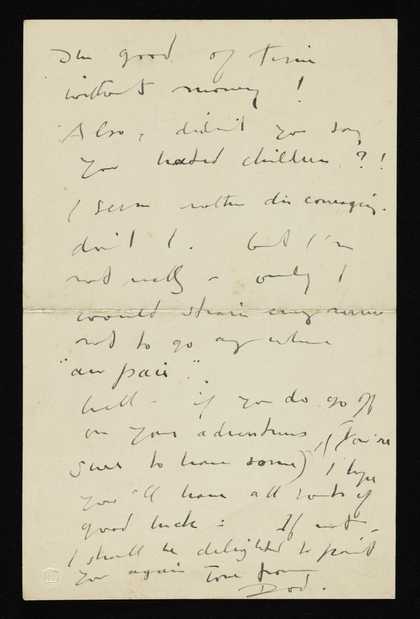 The good of time
without money!
Also, didn't you say
you hated children?!
I seem rather discouraging.
don't I. but I'm
not really – only I
would strain any nerve
not to go anywhere
"au pair".
Well – if you do go off
on your adventures, (You're
sure to have some) I hope
you'll have all sorts of
good luck: If not,
I shall be delighted to paint
you again love from
Dod.